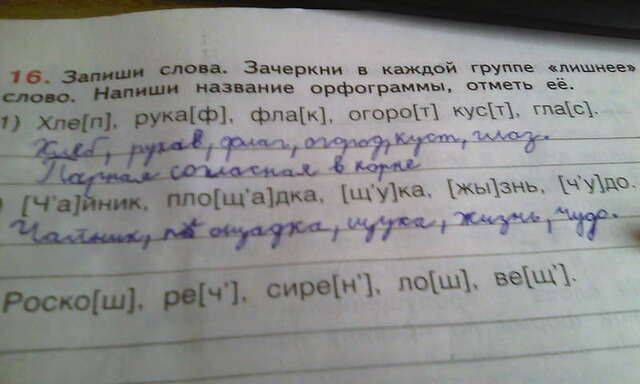 16. Запиши слова. Зачеркни в каждой группе «лишнее»
слово. Напиши название орфограммы, отметь её.
1) Хле[п], рука[ф], фла[к], огоро[т] кус[т], гла[с].
Хлеб, рукав, флаг, огород, куст, глаз.
Парная согласная в корне
) [Ч'а]йник, пло[щ'а]дка, [щ'у]ка, [жы]знь, [ч'у]до.
Чайник, площадка, щука, жизнь, чудо.
Роско[ш], ре[ч'], сире[н'], ло[ш], ве[щ'].